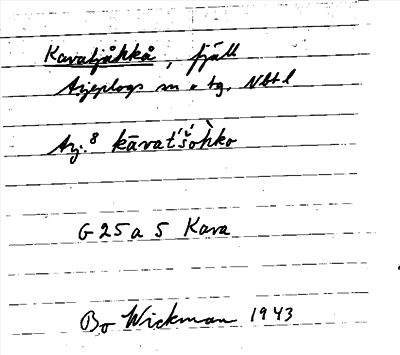 Kavatjåkkå, fjäll
Arjeplogs sn o tg, Nbtl
Arj. 8 kāvat́'š́òhko
G 25 a 5 Kava
Bo Wickman 1943